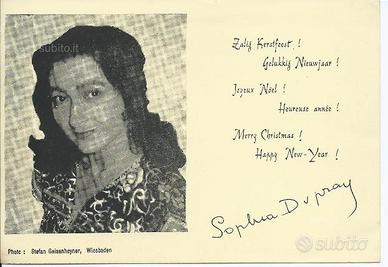 subito.it
Zalig Kerstfeest !
Gelukkig Nieuwjaar !
Joyeux Nöel !
Heureuse année !
Merry Christmas !
Happy New-Year !
Sophia Dupray
Photo : Stefan Geisenheyner, Wiesbaden
subito